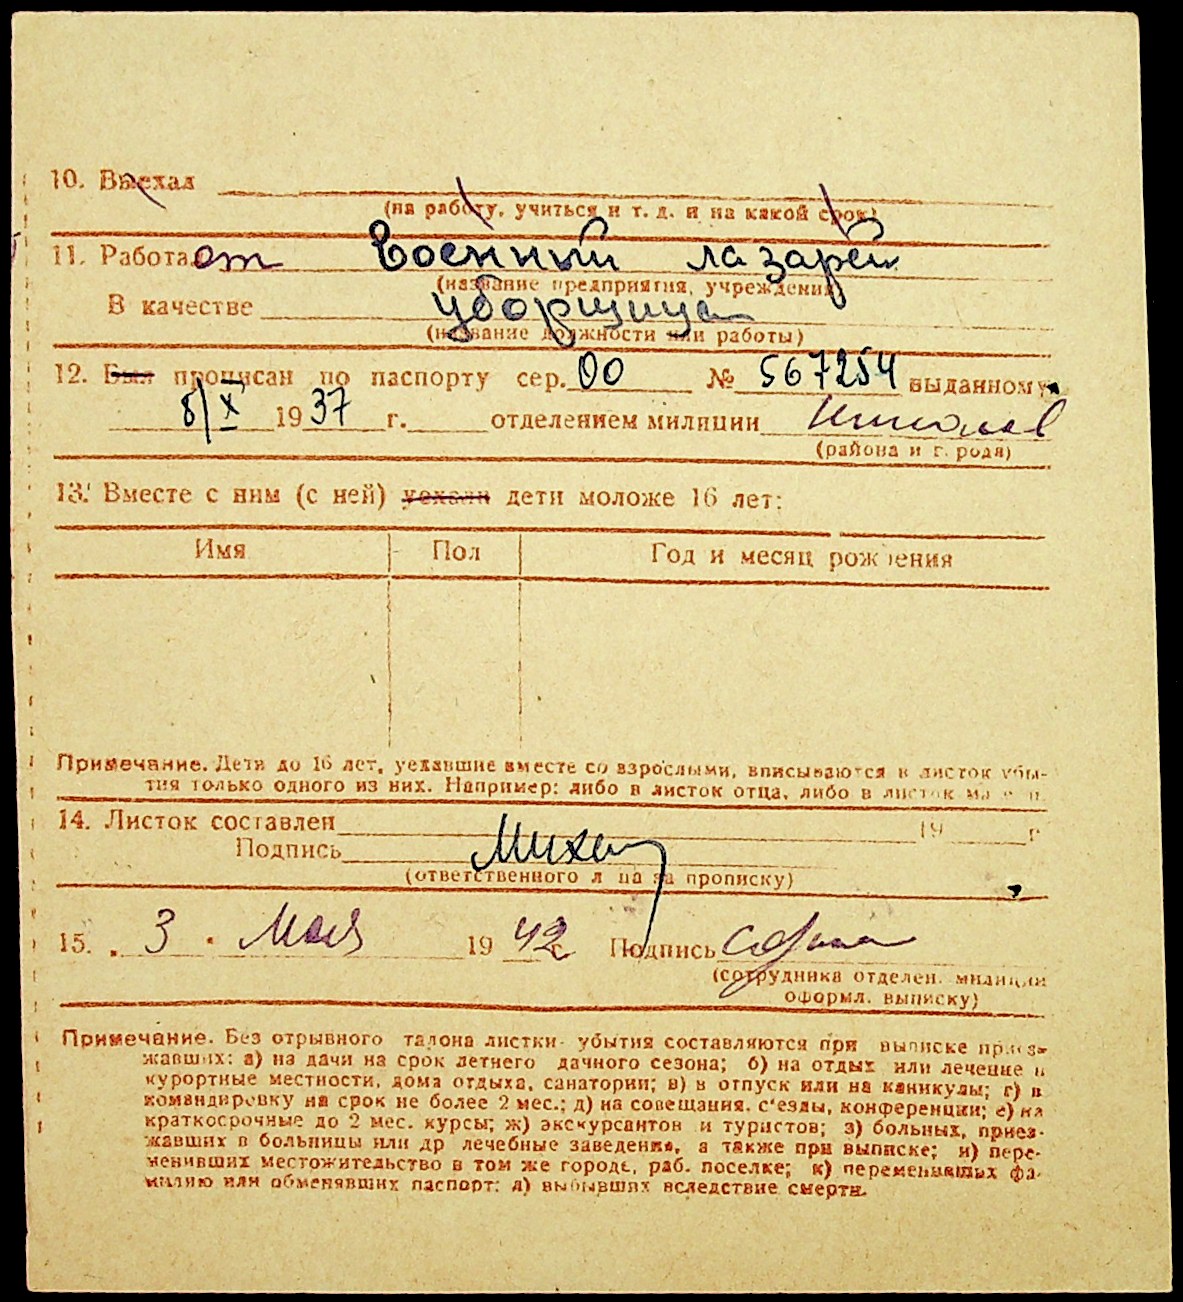 10. Выехал
(на работу, учиться и т. д. и на какой срок)
11. Работает Военный лазарет
(название предприятия, учреждения)
В качестве уборщица
(название должности или работы)
12. Был прописан по паспорту сер. 00 № 567254 выданному
8/X 1937 г. отделением милиции Николаев
(района и города)
13. Вместе с ним (с ней) уехали дети моложе 16 лет:
Имя Пол Год и месяц рождения
Примечание. Дети до 16 лет, уехавшие вместе со взрослыми, вписываются в листок убы-
тия только одного из них. Например: либо в листок отца, либо в листок матери.
14. Листок составлен 19 г
Подпись
(ответственного лица за прописку)
15. 3 Мая 1942 г. Подпись
(сотрудника отделен. милиции
оформл. выписку)
Примечание. Без отрывного талона листки убытия составляются при выписке приез-
жавших: а) на дачи на срок летнего дачного сезона; б) на отдых или лечение в
курортные местности, дома отдыха, санатории; в) в отпуск или на каникулы; г) в
командировку на срок не более 2 мес.; д) на совещания, с'езды, конференции; е) на
краткосрочные до 2 мес. курсы; ж) экскурсантов и туристов; з) больных, приез-
жавших в больницы или др лечебные заведения, а также при выписке; и) пере-
менивших местожительство в том же городе, раб. поселке; к) переменивших фа-
милию или обменявших паспорт; л) выбывших вследствие смерти.